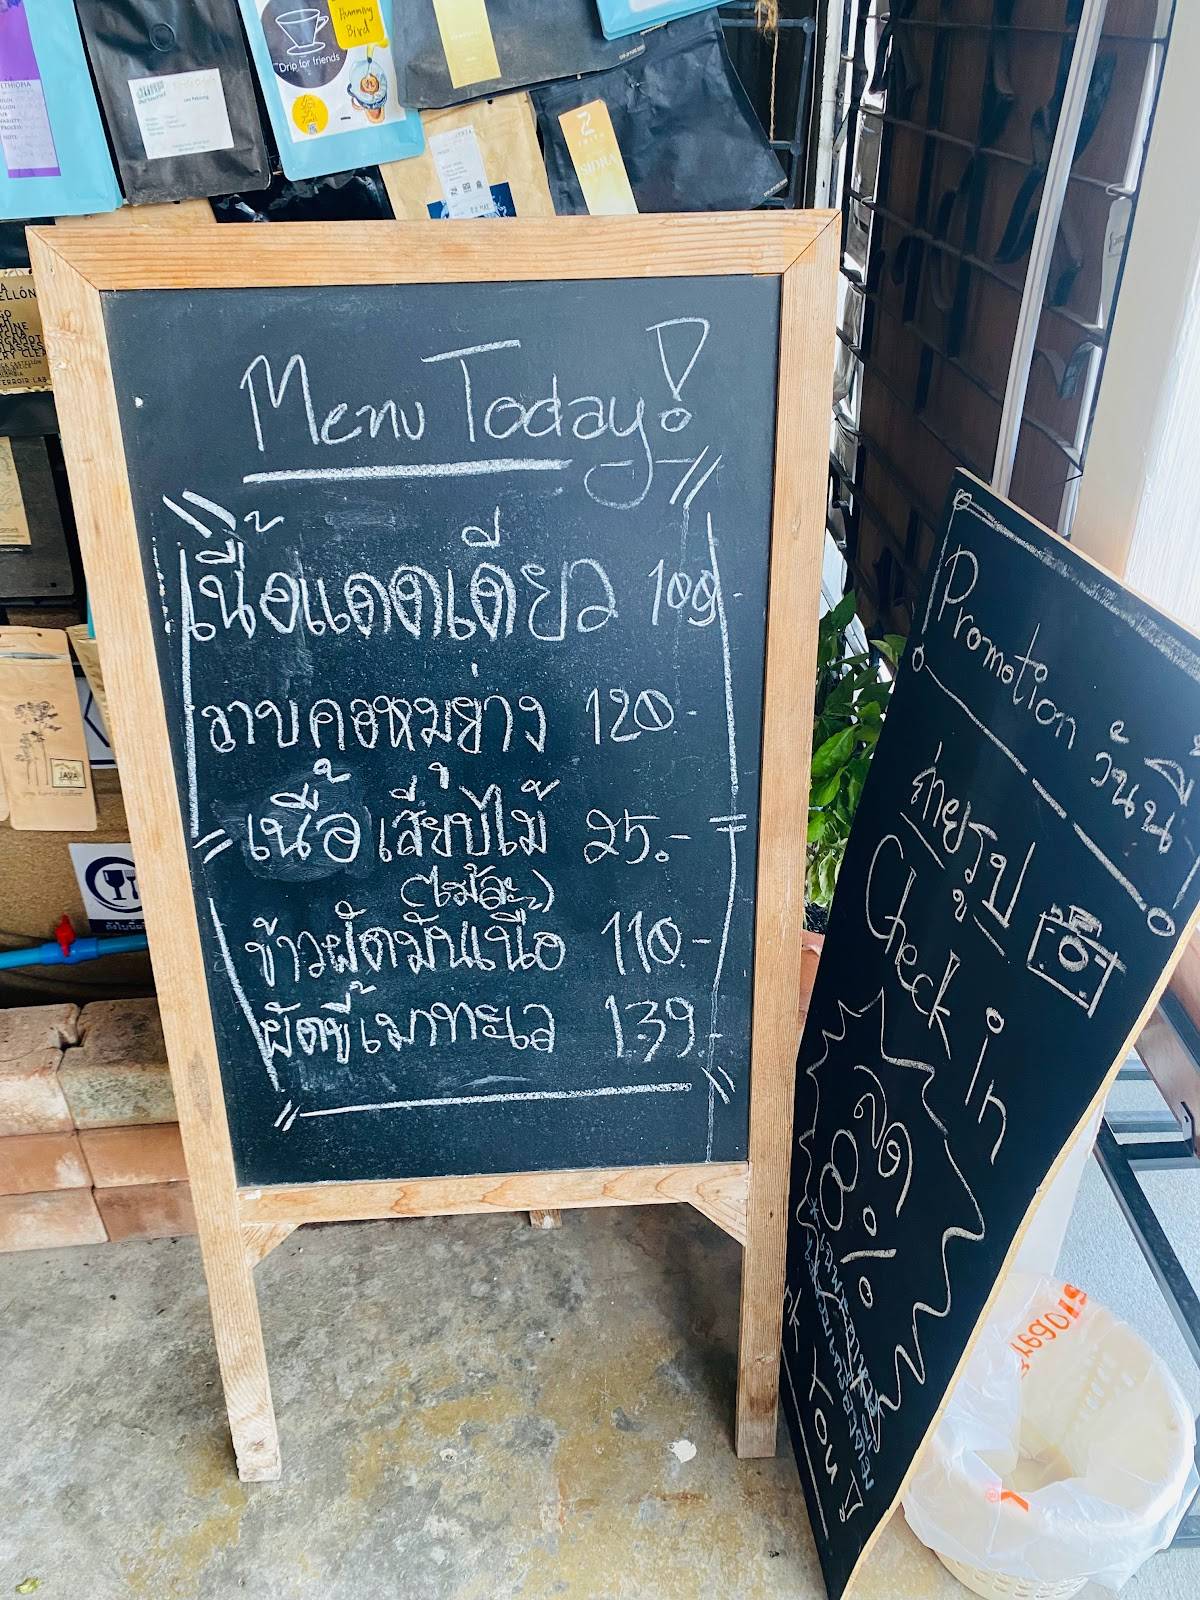 Humming
Bird
Drip for friends
ETHIOPIA
PROCESS
SIDRA
TERROIR LAB
JAVA
Menu Today!
เนื้อแดดเดียว 100.-
ลาบคอหมูย่าง 120.-
เนื้อเสียบไม้ 25.-
(ไม้ละ)
ข้าวผัดมันเนื้อ 110.-
ผัดขี้เมาทะเล 139.-
Promotion วันนี้
ถ่ายรูป
Check in
ลด
8%
You